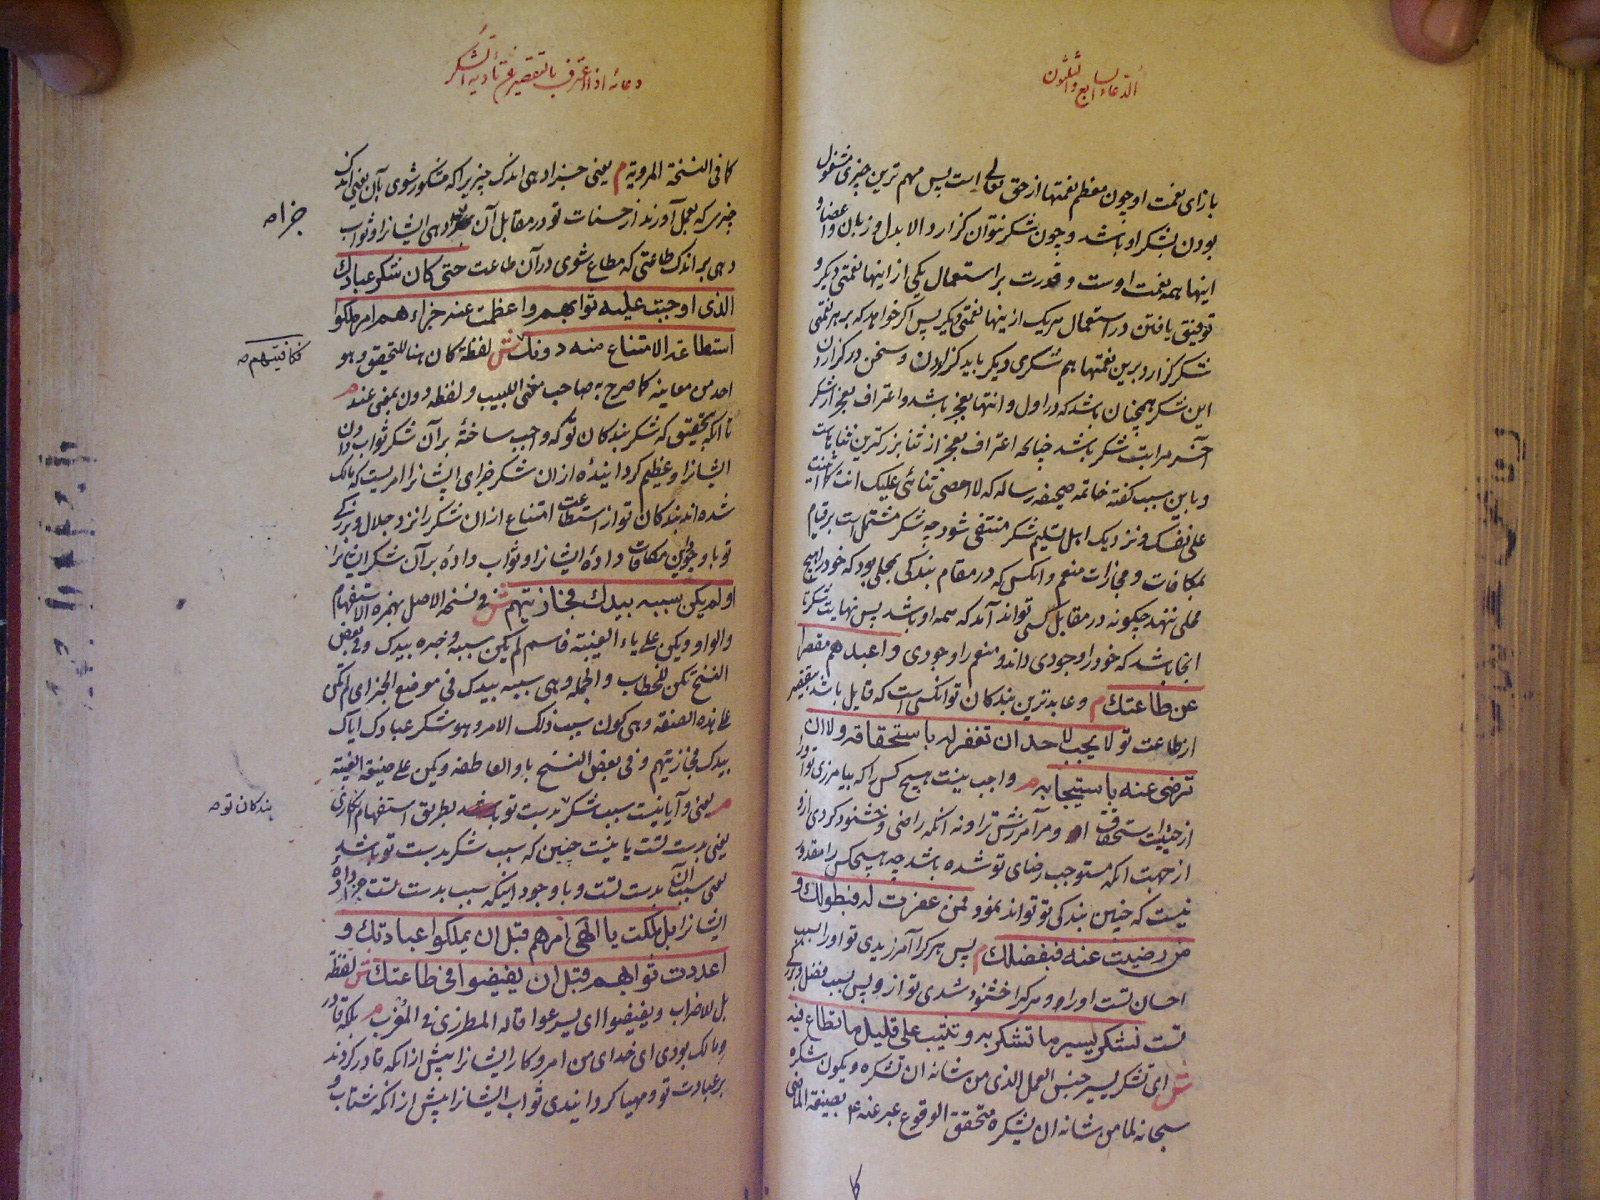 الدعاء السابع والثلثون
بازای نعمت او چون معظم نعمتها از حق تعالی است پس مهم ترین چیزی مشغول
بودن بشکر او باشد و چون شکر نتوان گزارد الا بدل و زبان و اعضا و
اینها همه نعمت اوست و قدرت بر استعمال یکی از اینها نعمتی دیگر و
توفیق یافتن در استعمال هر یک از ینها نعمتی دیگر پس اگر خواهد که بر هر نعمتی
شکر گزارد برین نعمتها هم شکری دیگر باید گزاردن و سخن در گزاردن
این شکر همچنان باشد که در اول و انتها بعجز باشد و اعتراف بعجز از شکر
آخر مراتب شکر باشد چنانکه اعتراف بعجز از ثنا بزرگترین ثناهاست
و باین سبب گفته خاتمه صحیفه رساله که لا احصی ثنائی علیک انت کما اثنیت
علی نفسک و نزدیک اهل تسلیم شکر منتفی شود چه شکر مشتمل است بر قیام
بمکافات و مجازات منعم و انکس که در مقام بندگی بمحلی بود که خود را هیچ
محلی ننهد چگونه در مقابل کسی تواند آمد که همه او باشد پس نهایت شکر تا
انجا باشد که خود را وجودی داند و منعم را وجودی و اعبدهم مقصر
عن طاعتك م و عابدترین بندگان تو انکسی است که قایل باشد بتقصیر
از طاعت تو لا يجب لاحد ان تغفر له باستحقاقه ولا ان
ترضى عنه باستيجابه م واجب نیست هیچ کس را که بیامرزی تو او را
از جهت استحقاق او مر آمرزش ترا و نه انکه راضی و خشنود گردی ازو
از جهت انکه مستوجب رضای تو شده باشد چه هیچکس را مقدور
نیست که چنین بندگی تو تواند نمود فمن غفرت له فبطولك و
من رضيت عنه فبفضلك م پس هر کرا آمرزیدی تو او را بسبب
احسان تست او را و هر کرا خشنود شدی تو ازو پس بسبب فضل و بزرگی
تست تشكر يسير ما تشكر به وتثيب على قليل ما تطاع فيه
ش ای تشکر یسیر جنس العمل الذی من شانه ان تشکره و یکون شکره
سبحانه لما من شانه ان یشکره متحقق الوقوع عبر عنه بصیغة الماضی
کا
دعائه اذا اعترف بالتقصیر عن تادیة الشکر
کما فی النسخة المرویة م یعنی جزا دهی اندک چیزیرا که مشکور شوی بآن یعنی اندک
چیزی که بعمل آورند از حسنات تو در مقابل آن دهی ایشانرا و ثواب
دهی بر اندک طاعتی که مطاع شوی در آن طاعت حتى كان شكر عبادك
الذي اوجبت عليه ثوابهم واعظمت عنه جزاءهم امر ملكوا
استطاعة الامتناع منه دونك ش لفظة کان هنا للتحقق و هو
احد من معانیه کما صرح به صاحب مغنی اللبیب و لفظه دون بمعنی عند م
تا انکه بتحقیق که شکر بندگان تو که واجب ساختهٔ بر آن شکر ثواب دادن
ایشانرا و عظیم گردانیدهٔ از ان شکر جزای ایشانرا امریست که مالک
شده اند بندگان تو از استطاعت امتناع از ان شکر را نزد جلال و بزرگی
تو با وجود این مکافات دادهٔ ایشانرا و ثواب دادهٔ بر آن شکر ایشانرا
او لم يكن سببه بيدك فجازيتهم ش فی نسخة الاصل بهمزة الاستفهام
والواو و یکن علی یاء الغیبة فاسم لم یکن سببه و خبره بیدک و فی بعض
النسخ تکن للخطاب و الجملة و هی سببه بیدک فی موضع الخبر ای لم تکن
علی هذه الصفة و هی کون سبب ذلک الامر و هو شکر عبادک ایاک
بیدک فجازیتهم و فی بعض النسخ باو العاطفه و یکن علی صیغة الغیبة
م یعنی و آیا نیست سبب شکر بدست تو بطریق استفهام انکاری
یعنی بدست تست یا نیست چنین که سبب شکر بدست تو باشد
یعنی سبب آن بدست تست و با وجود اینکه سبب بدست تست جزا دادهٔ
ایشانرا بل ملكت يا الهي امرهم قبل ان يملكوا عبادتك و
اعددت ثوابهم قبل ان يفيضوا في طاعتك ش لفظة
بل للاضراب و یفیضوا ای یسرعوا قاله المطرزی فی المغرب م بلکه قادر
و مالک بودی ای خدای من امر و کار ایشانرا پیش از انکه قادر گردند
بر عبادت تو و مهیا گردانیدی ثواب ایشانرا پیش از انکه بشتابند
جزا صه
فکافیتهم صه
بندکان تو صه